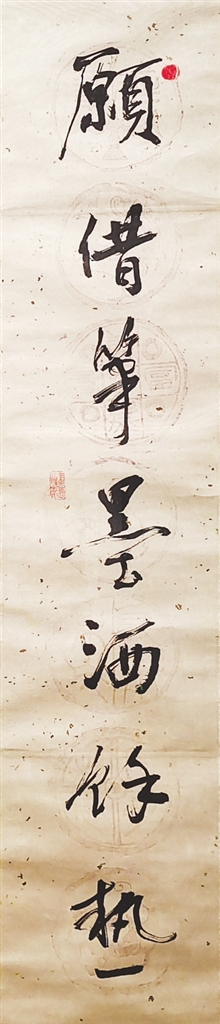 願借筆墨洒餘熱